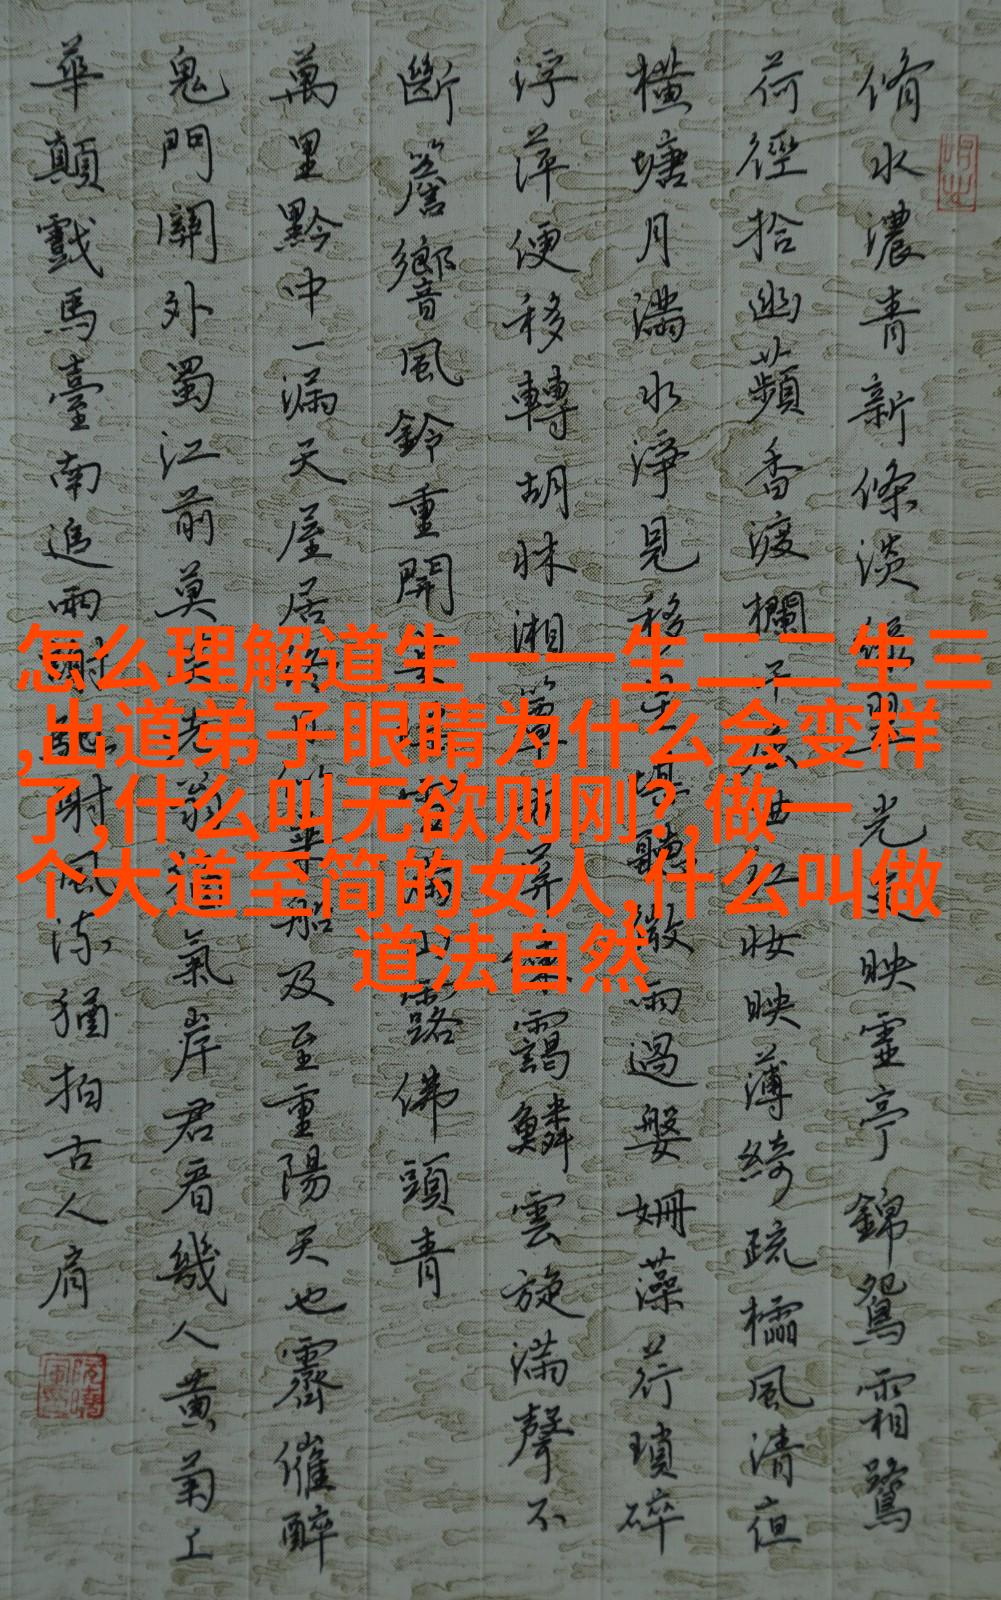 脩水濃青新條淡
光
映靈亭錦鴛霜鷺
荷徑拾幽蘋香渡欄干
紅妝映薄綺疏櫺風清夜
橫塘月滿水淨見移
聽微雨過婆姍藻荇瑣碎
浮萍便移轉胡牀湘簟
靄鱗雲旋滿聲不
斷簷響風鈴重開
露佛頭青
萬里黔中一漏天屋居終
船及至重陽天也霽催醉
鬼門關外蜀江前莫笑老翁
氣岸君看幾人黃菊上
華顛戲馬臺南追兩謝馳射風流猶拍古人肩
怎么理解道生一一生二二生三
,出道弟子眼睛为什么会变样
了,什么叫无欲则刚?,做一
个大道至简的女人,什么叫做
道法自然